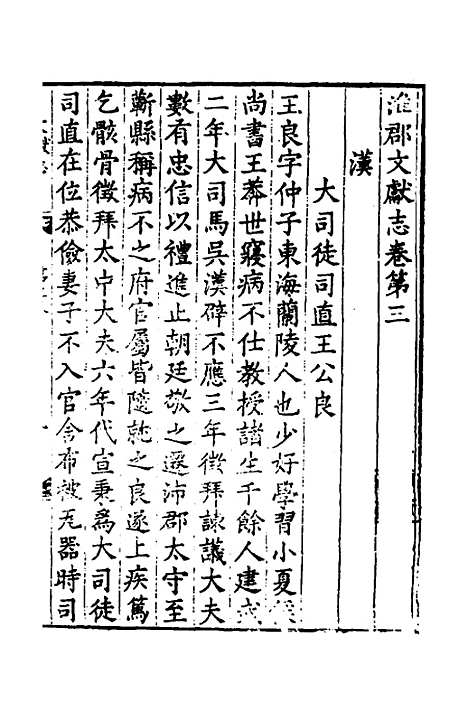 淮郡文獻志卷第三
漢
大司徒司直王公良
王良字仲子東海蘭陵人也少好學習小夏侯
尚書王莽世寢病不仕教授諸生千餘人建武
二年大司馬吳漢辟不應三年徵拜諫議大夫
數有忠信以禮進止朝廷敬之遷沛郡太守至
蘄縣稱病不之府官屬皆隨就之良遂上疾篤
乞骸骨徵拜太中大夫六年代宣秉爲大司徒
司直在位恭儉妻子不入官舍布被瓦器時司